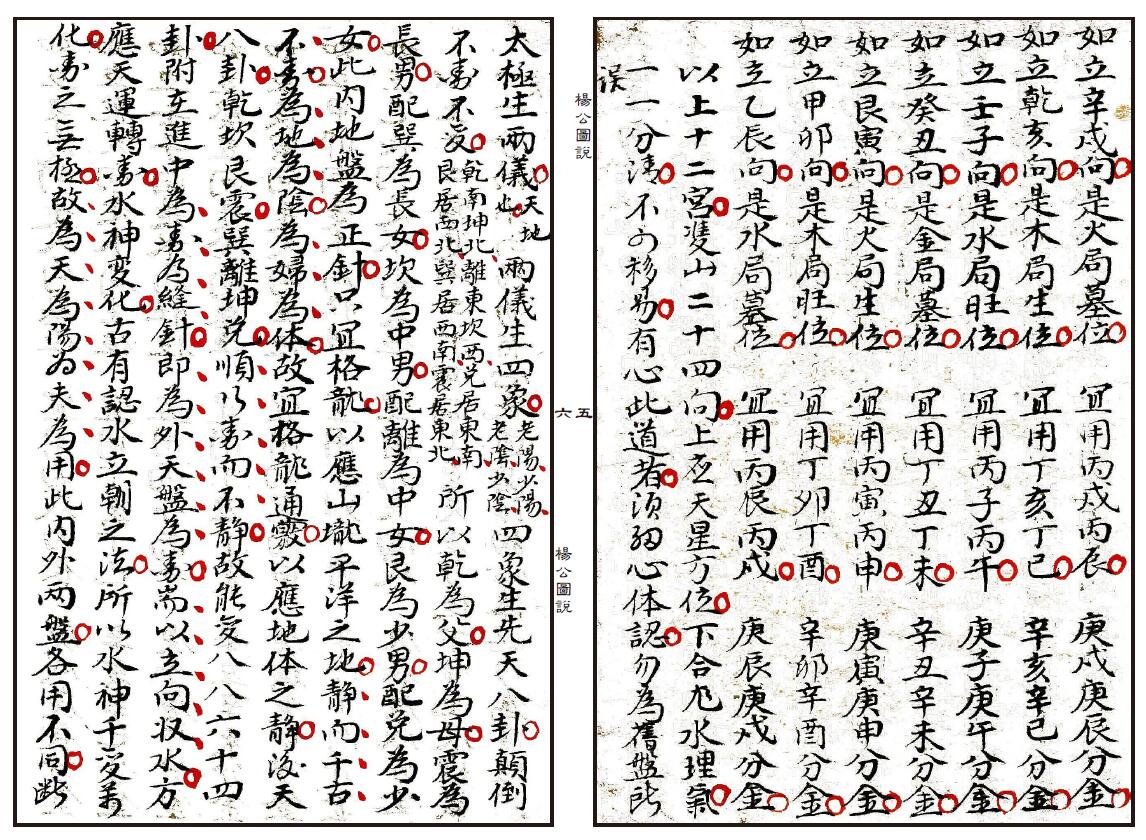 如立辛戌向是火局墓位 宜用丙戌丙辰 庚戌庚辰分金
如立乾亥向是木局生位 宜用丁亥丁巳 辛亥辛巳分金
如立壬子向是水局旺位 宜用丙子丙午 庚子庚午分金
如立癸丑向是金局墓位 宜用丁丑丁未 辛丑辛未分金
如立艮寅向是火局生位 宜用丙寅丙申 庚寅庚申分金
如立甲卯向是木局旺位 宜用丁卯丁酉 辛卯辛酉分金
如立乙辰向是水局墓位 宜用丙辰丙戌 庚辰庚戌分金
以上十二宮雙山二十四向上应天星方位下合九水理氣
一一分清不可移易有心此道者須細心体認勿為舊盤所
误
楊公圖說
五
六
楊公圖說
太極生兩儀天地也兩儀生四象老陽少陽老陰少陰四象生先天八卦顛倒
不動不变乾南坤北離東坎西兌居東南艮居西北巽居西南震居東北所以乾為父坤為母震為
長男配巽為長女坎為中男配離為中女艮為少男配兌為少
女此内地盤為正針只宜格龍以應山壠平洋之地静而千古
不動為地為陰為婦為体故宜格龍通竅以應地体之静後天
八卦乾坎艮震巽離坤兌順以動而不静故能变八八六十四
卦附在進中為動為縫針即為外天盤為動耑以立向収水方
應天運轉動水神変化古有認水立朝之法所以水神千变萬
化動之无極故為天為陽为夫為用此内外两盤各用不同断